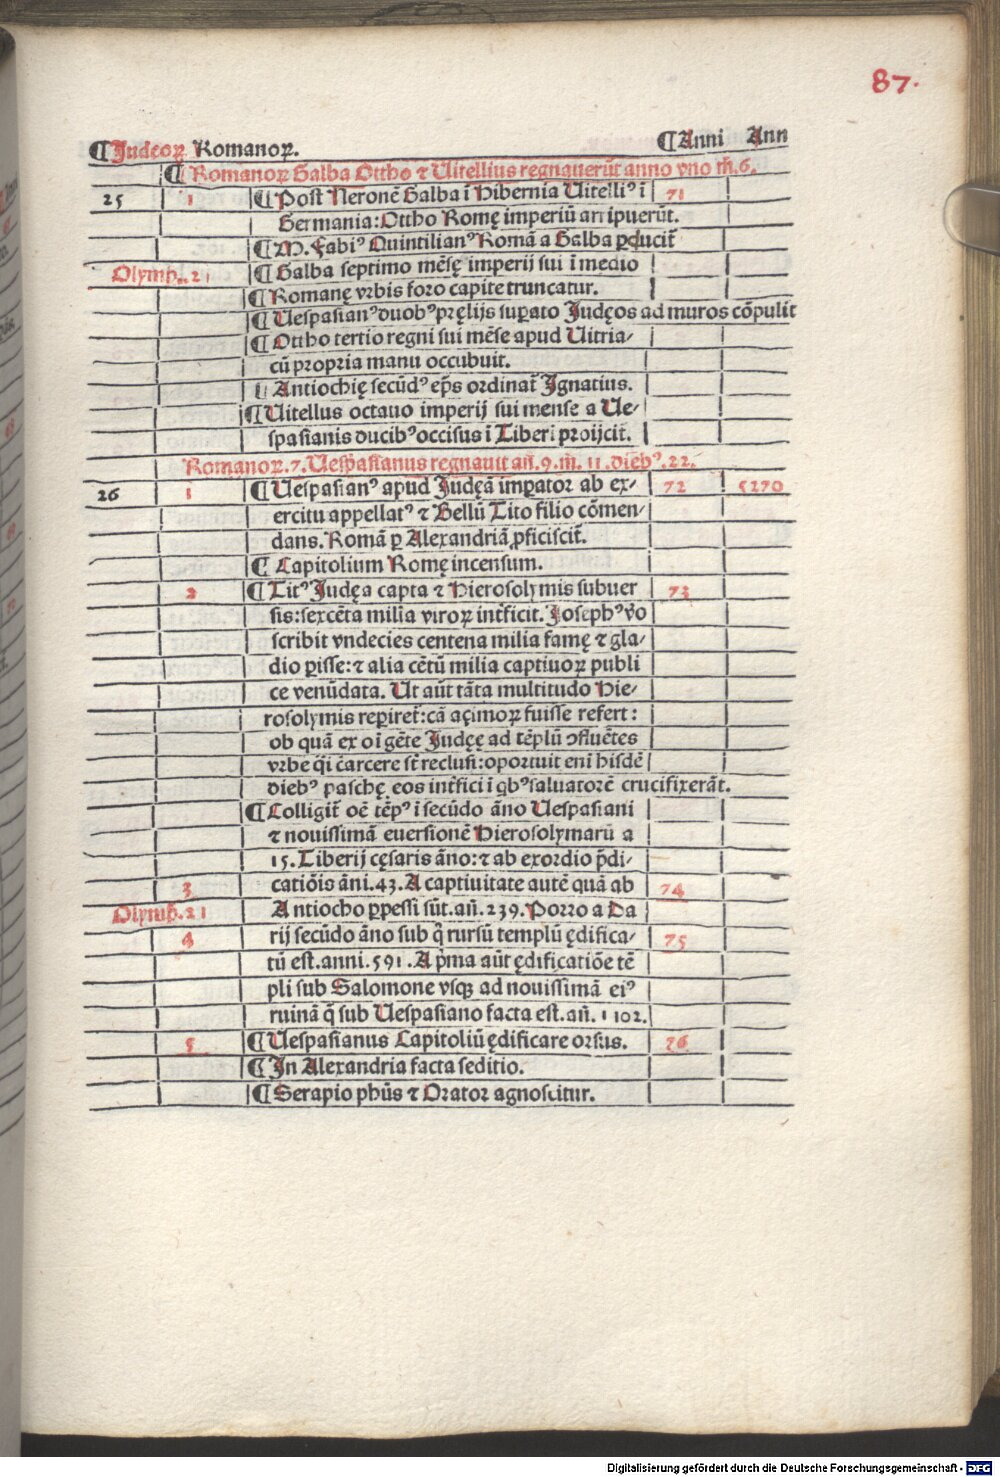 87.
¶ Judęoꝝ Romanoꝝ. ¶ Anni Ann
¶ Romanoꝝ Galba Ottho ⁊ Uitellius regnauerūt anno vno m̄.6.
25 1 ¶ Post Neronē Galba ī Hibernia Uitelliꝰ ī 71
Germania: Ottho Romę imperiū arripuerūt.
¶ M. Fabiꝰ Quintilianꝰ Romā a Galba ꝑducit̄
Olymp. 21 ¶ Galba septimo mēsę imperij sui ī medio
¶ Romanę vrbis foro capite truncatur.
¶ Uespasianꝰ duobꝰ pręlijs suꝑato Judęos ad muros cōpulit
¶ Ottho tertio regni sui mēse apud Uitria-
cū propria manu occubuit.
¶ Antiochię secūdꝰ ep̄s ordinat̄ Ignatius.
¶ Uitellus octauo imperij sui mense a Ue-
spasianis ducibꝰ occisus ī Tiberi proijcit̄.
Romanoꝝ.7. Uesp̄asianus regnauit an̄.9.m̄.11. diebꝰ.22.
26 1 ¶ Uespasianꝰ apud Judęā imꝑator ab ex- 72 5270
ercitu appellatꝰ ⁊ Bellū Tito filio cōmen-
dans. Romā ꝑ Alexandriā ꝓficiscit̄.
¶ Capitolium Romę incensum.
2 ¶ Titꝰ Judęa capta ⁊ Hierosolymis subuer 73
sis: sexcēta milia viroꝝ int̄ficit. Josephꝰ vo
scribit vndecies centena milia famę ⁊ gla-
dio ꝑisse: ⁊ alia cētū milia captiuoꝝ publi
ce venūdata. Ut aūt tāta multitudo Hie-
rosolymis reꝑiret̄: cā açimoꝝ fuisse refert:
ob quā ex oī gēte Judęę ad tēplū ↄfluētes
vrbe q̄i carcere st̄ reclusi: oportuit enī hisdē
diebꝰ paschę eos int̄fici ī qbꝰ saluatorē crucifixerāt.
¶ Colligit̄ oē tēpꝰ ī secūdo āno Uespasiani
⁊ nouissimā euersionē Hierosolymarū a
15. Tiberij cęsaris āno: ⁊ ab exordio p̄di-
3 catiōis āni.43. A captiuitate autē quā ab 74
Olymp̄.21 Antiocho ꝑpessi sūt. an̄.239. Porro a Da
4 rij secūdo āno sub q̄ rursū templū ędifica- 75
tū est. anni.591. A p̄ma aūt ędificatiōe tē
pli sub Salomone vsqꝫ ad nouissimā eiꝰ
ruinā q̄ sub Uespasiano facta est. an̄. 1102.
5 ¶ Uespasianus Capitoliū ędificare orsus. 76
¶ In Alexandria facta seditio.
¶ Serapio phūs ⁊ Orator agnoscitur.
Digitalisierung gefördert durch die Deutsche Forschungsgemeinschaft - DFG